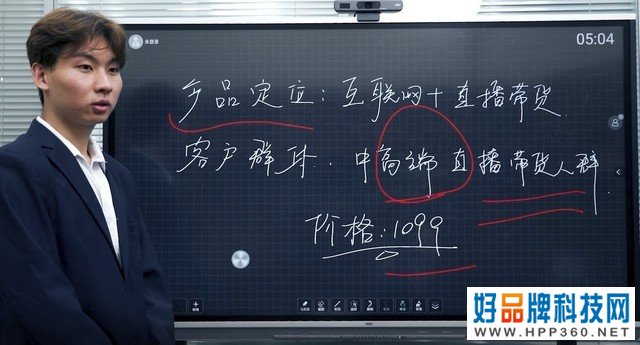 未登录
05:04
产品定位：互联网+直播带货
客户群体．中高端直播带货人群．
价格：1099
AOC
好品牌科技网
WWW.HPP360.NET